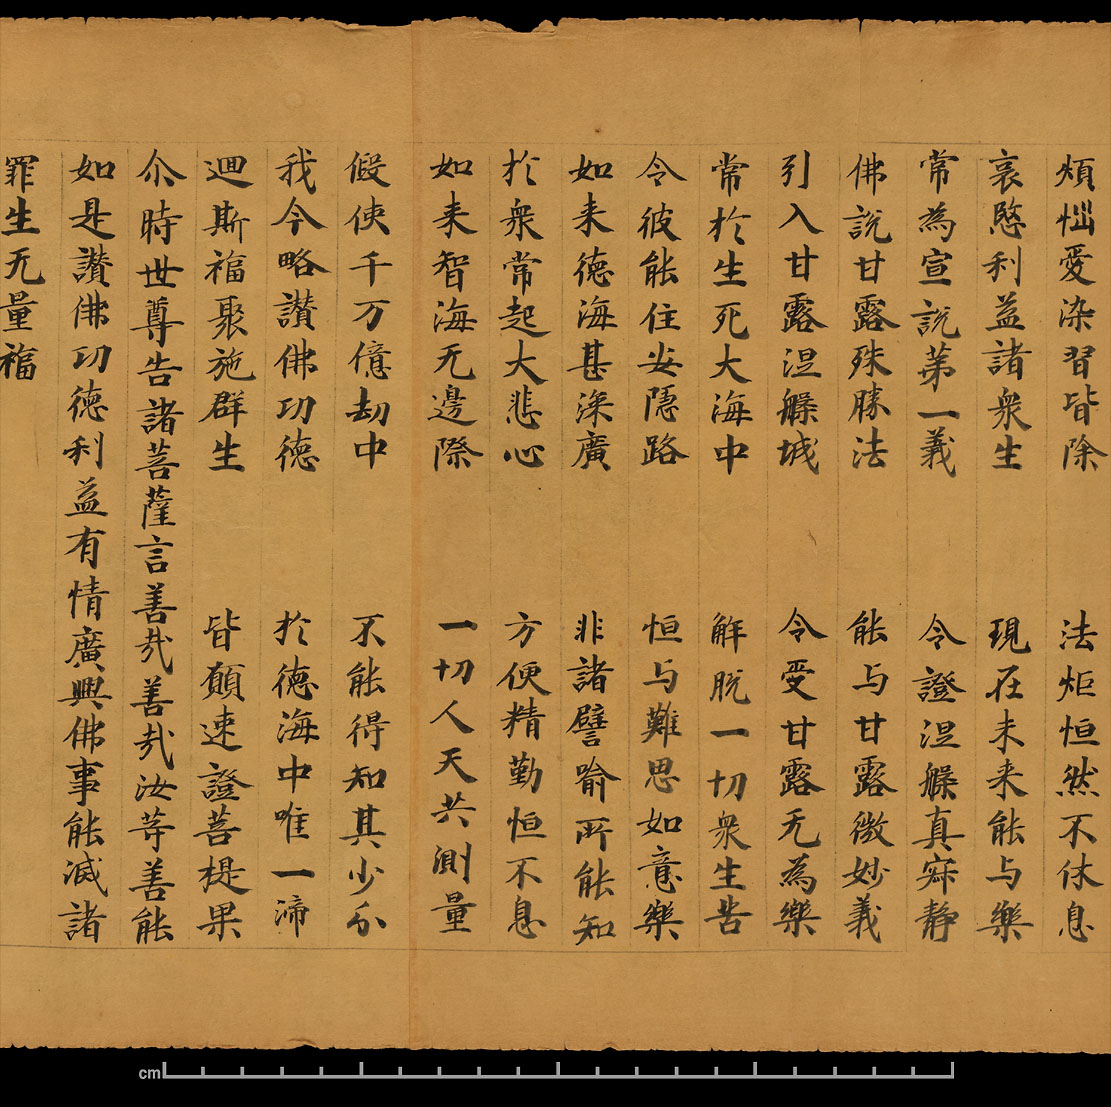 煩惱愛染習皆除　法炬恒然不休息
哀愍利益諸衆生　現在未来能与樂
常為宣說苐一義　令證涅槃真㝛静
佛說甘露殊勝法　能与甘露微妙義
引入甘露涅槃城　令受甘露无為樂
常於生死大海中　解脫一切衆生苦
令彼能住安隱路　恒与難思如意樂
如来德海甚深廣　非諸譬喻所能知
於衆常起大悲心　方便精勤恒不息
如来智海无邊際　一切人天共測量
假使千万億劫中　不能得知其少分
我今略讃佛功德　於德海中唯一渧
迴斯福聚施群生　皆願速證菩提果
尒時世尊告諸菩薩言善㢤善㢤汝等善能
如是讃佛功德利益有情廣興佛事能滅諸
罪生无量福
cm